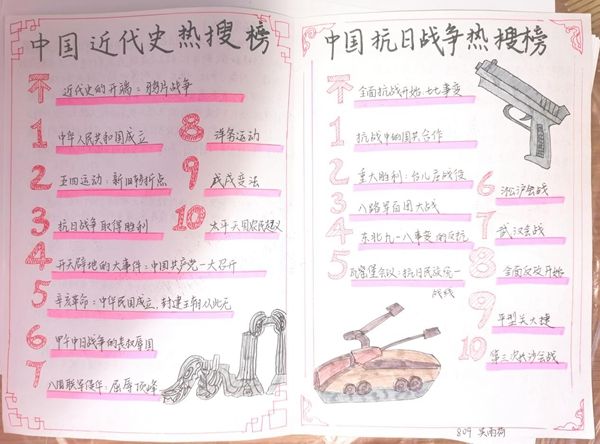 中国近代史热搜榜
近代史的开端：鸦片战争
1 中华人民共和国成立
2 五四运动：新旧转折点
3 抗日战争取得胜利
4 开天辟地的大事件：中国共产党一大召开
5 辛亥革命：中华民国成立，封建王朝从此无
6 甲午中日战争的丧权辱国
7 八国联军侵华：屈辱顶峰
8 洋务运动
9 戊戌变法
10 太平天国农民起义
中国抗日战争热搜榜
全面抗战开始：七七事变
1 抗战中的国共合作
2 重大胜利：台儿庄战役
3 八路军百团大战
4 东北九一八事变的反抗
5 瓦窑堡会议：抗日民族统一
战线
6 淞沪会战
7 武汉会战
8 全面反攻开始
9 平型关大捷
10 第三次长沙会战
809 吴雨荷